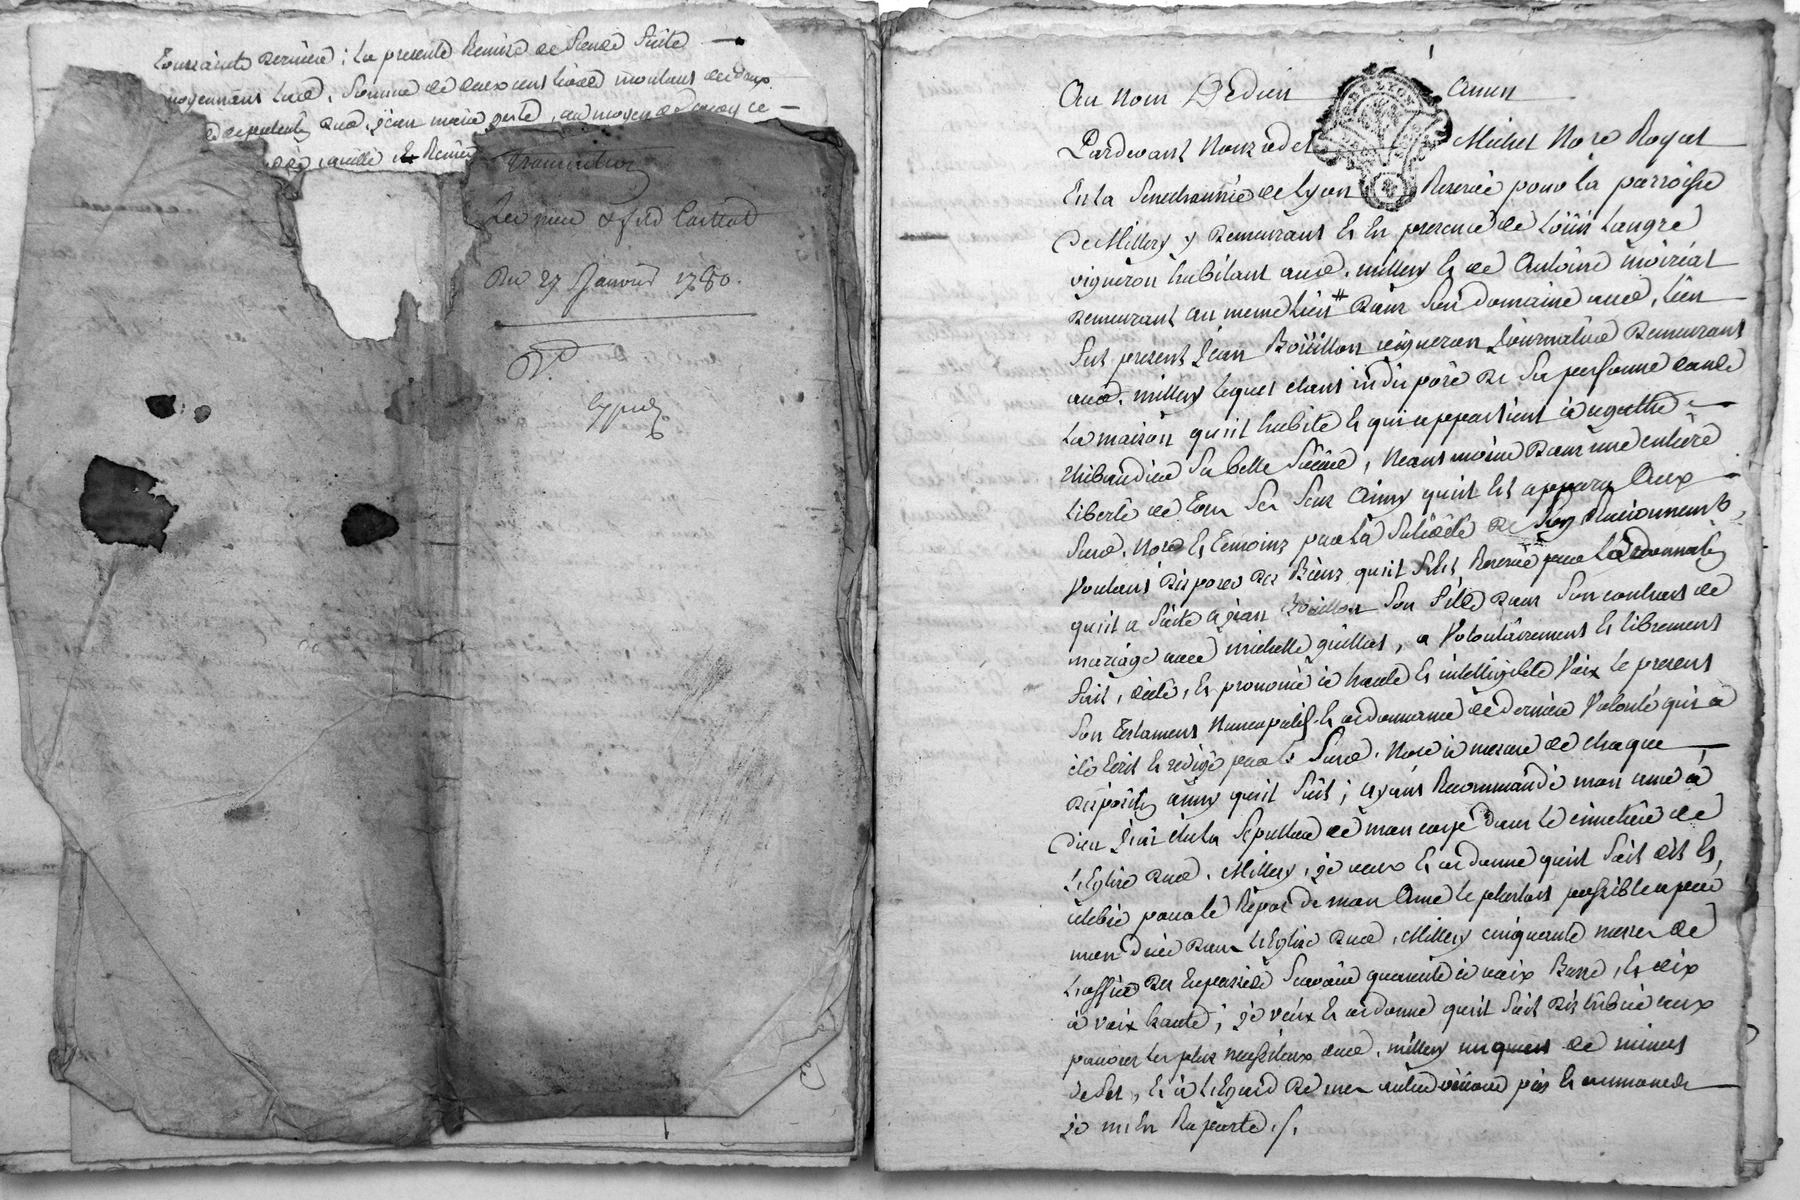 toussaints derniere ; la presente Remise de pieces faite
moyennant lad. somme de deux cens livres montant dud. prix
dependents dud. jean marie
Transaction
Du 27 Janvier 1780.
Exped.
Au nom De dieu Amen
DE LYON
Pardevant Nous Michel Nore Royal
En la Senechaussée de Lyon Reservé pour la parroisse
de Millery y Demeurant Et En presence de Loüis Langre
vigneron habitant aud. millery Et de Antoine moiriat
Demeurant au meme Lieu # Dans son domaine aud. Lieu
fut present Jean Boüillon vigneron Journalier Demeurant
aud. millery lequel etant indisposé De sa personne dans
La maison qu'il habite Et qui appartient à agathe
thibaudier sa belle soeur, Neans moins Dans une entiere
Liberté de tous ses sens Ainsy qu'il Est apparu Aux
susd. Nore Et temoins par la solidité De ses raisonnements,
Voulant Disposer des Biens qu'il s'est Reservé par La donnation
qu'il a faite a jean Boüillon son fils dans son contract de
mariage avec michelle guillot, a Volontairement Et librement
fait, dicté, Et prononcé à haute Et intelligible Voix Le present
son testament Nuncupatif Et ordonnance de derniere Volonté qui a
été Ecrit Et redigé par le susd. Nore à mesure de chaque
disposition ainsy qu'il suit ; ayant Recommandé mon ame à
Dieu J'ai élu la sepulture de mon corps dans le cimetiere de
L'Eglise dud. Millery, je veux Et ordonne qu'il soit dit Et
celebré pour le Repos de mon Ame le plutot possible apres
mon decès dans L'Eglise dud. Millery cinquante messes de
L'office des trepassés sçavoir quarante à voix Basse, Et dix
à voix haute ; je veux Et ordonne qu'il soit distribué aux
pauvres les plus necessiteux dud. millery
de sel, Et à L'Egard de mes autres oeuvres pies Et aumones
je m'en Raporte ./.